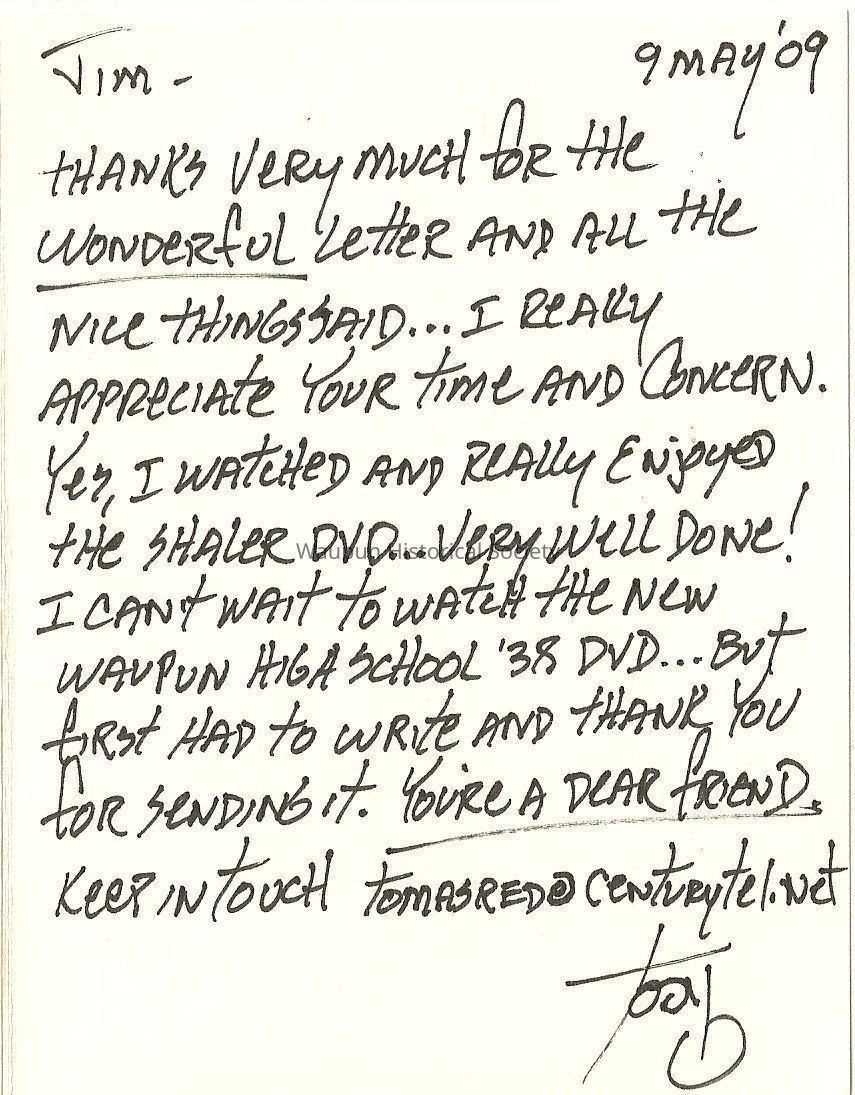 Jim - 9 MAY '09
THANKS VERY MUCH for THE
WONDERFUL LETTER AND ALL THE
NICE THINGS SAID... I REALLY
APPRECIATE YOUR TIME AND CONCERN.
Yes, I WATCHED AND REALLY ENJOYED
THE SHALER DVD... VERY WELL DONE!
Waupun Historical Society
I CAN'T WAIT TO WATCH THE NEW
WAUPUN HIGH SCHOOL '38 DVD... BUT
FIRST HAD TO WRITE AND THANK YOU
FOR SENDING IT. YOU'RE A DEAR FRIEND.
KEEP IN TOUCH TOMASRED@CENTURYTEL.NET